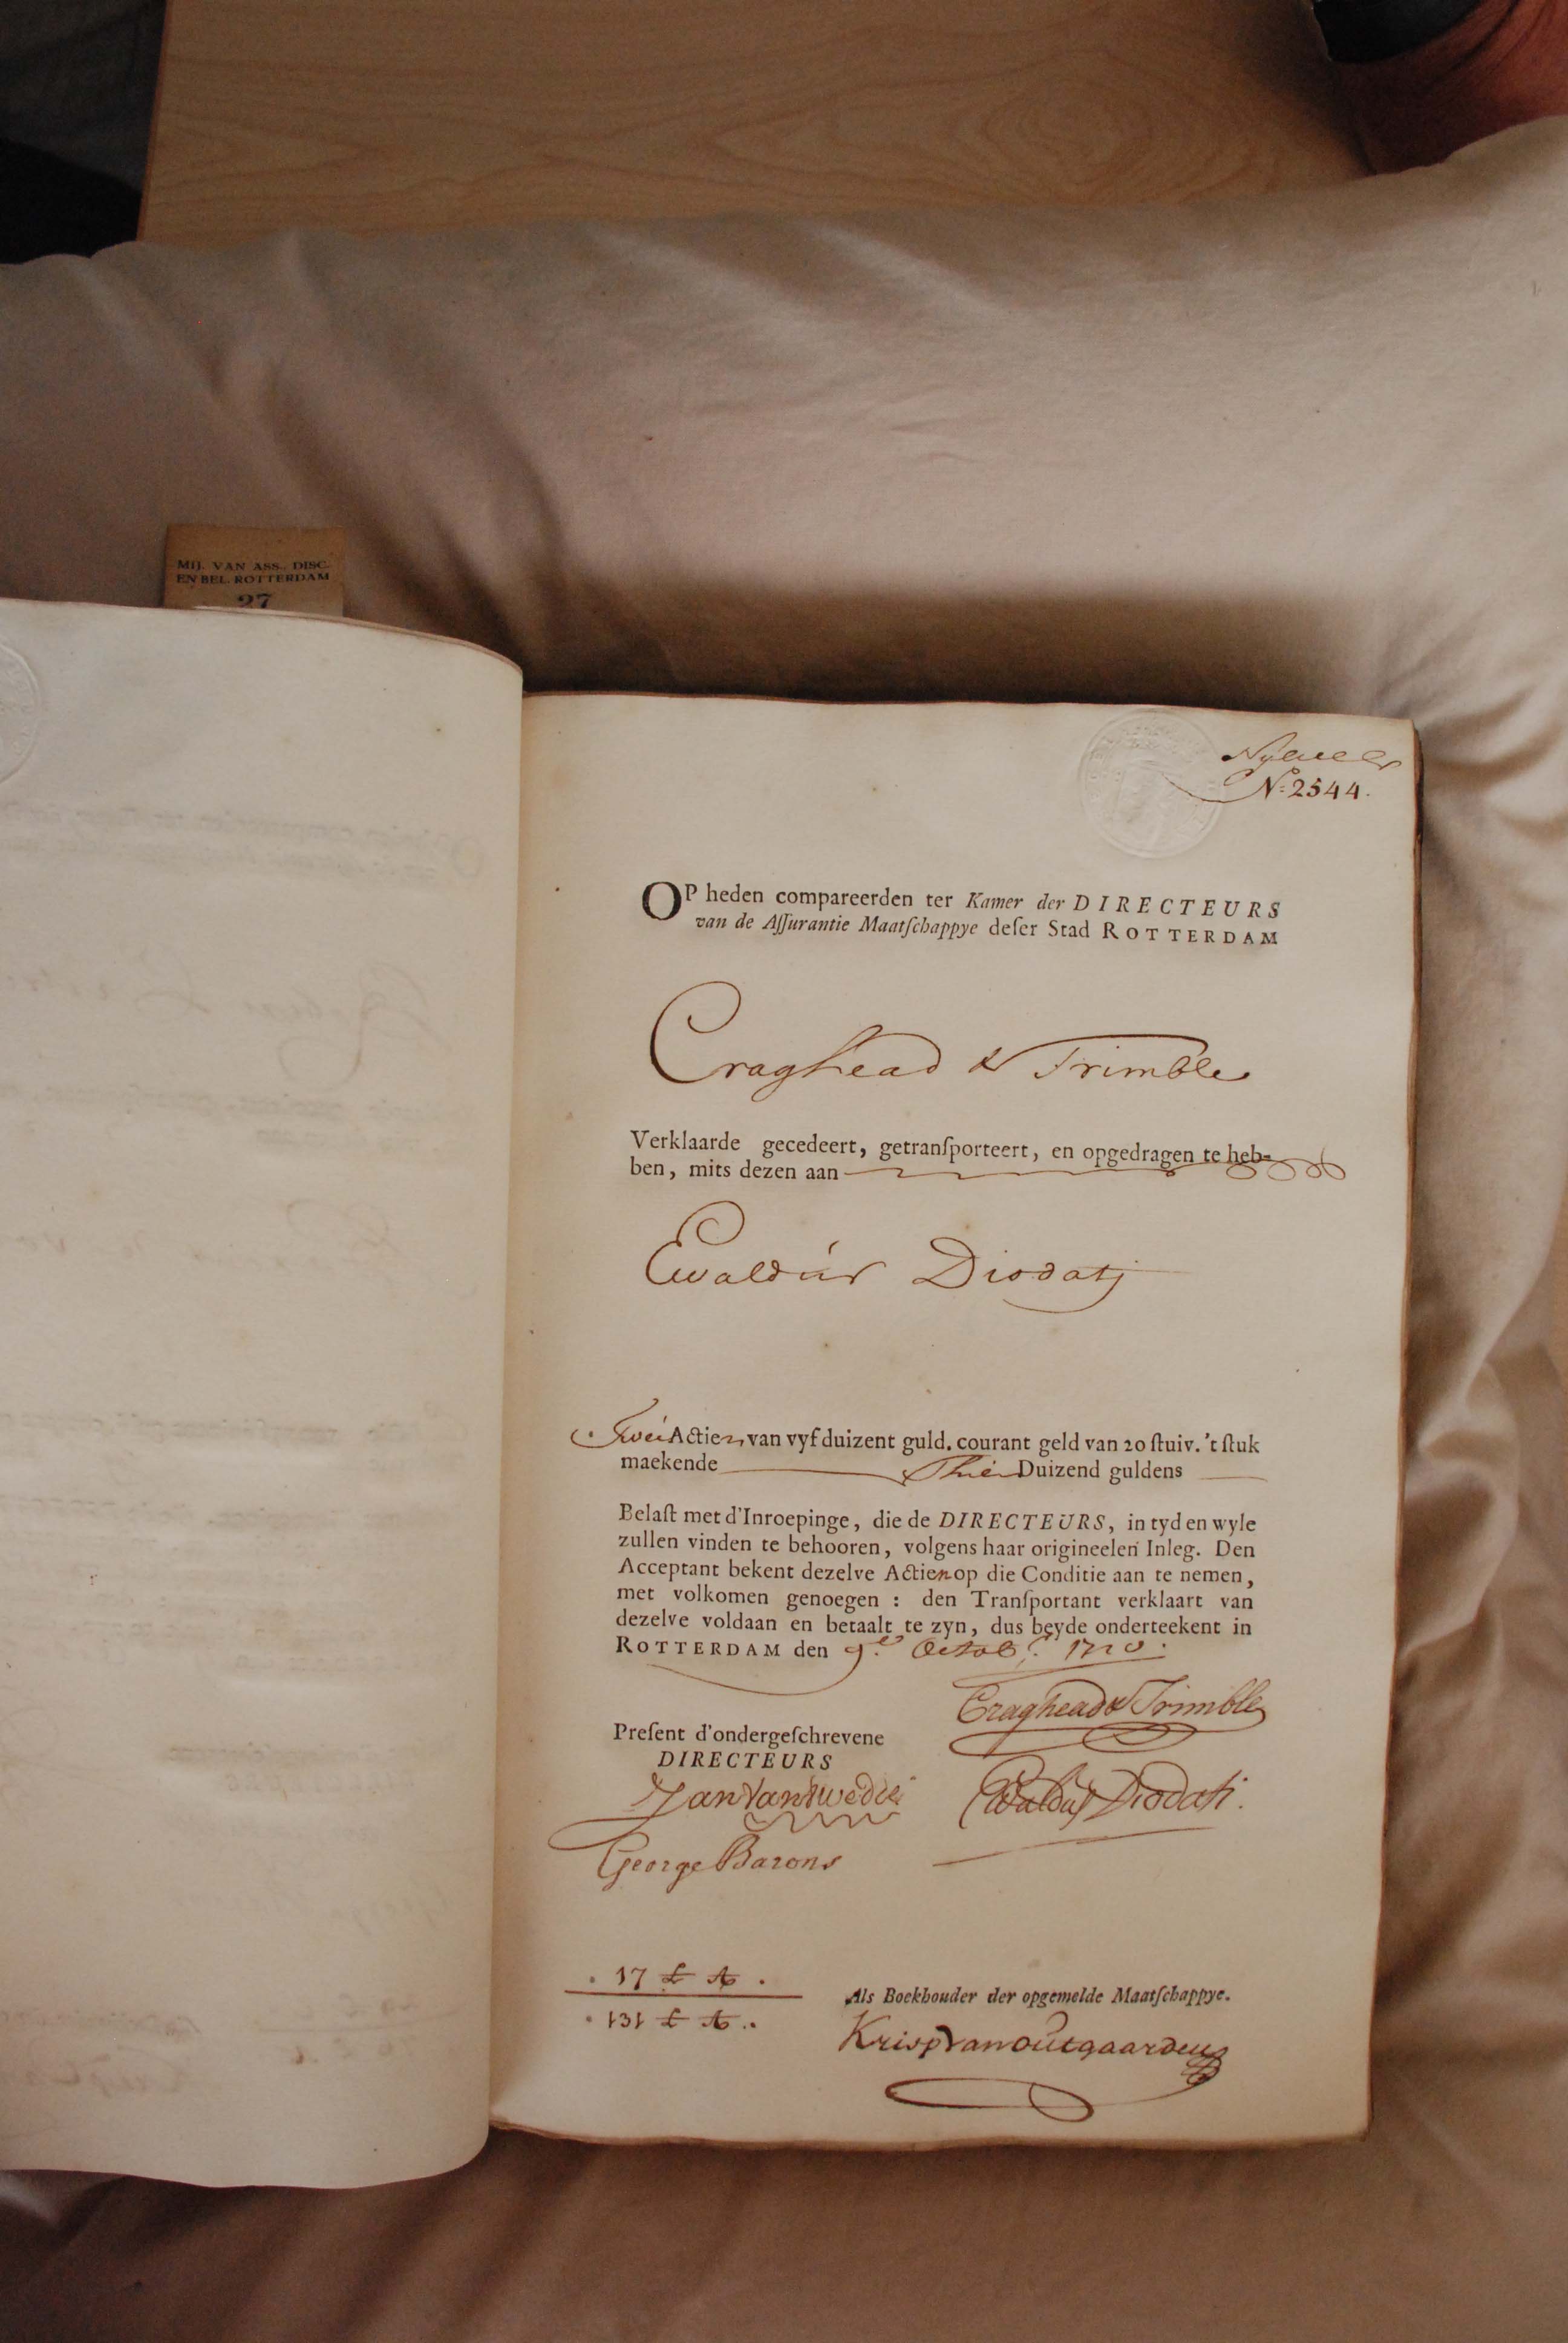 MIJ. VAN ASS., DISC.
EN BEL. ROTTERDAM
27
N:2544.
OP heden compareerden ter Kamer der DIRECTEURS
van de Aſſurantie Maatſchappye deſer Stad ROTTERDAM
Craghead & Trimble
Verklaarde gecedeert, getranſporteert, en opgedragen te heb-
ben, mits dezen aan
Ewaldus Diodatj
Twee Actien van vyf duizent guld. courant geld van 20 ſtuiv. 't ſtuk
maekende Thien Duizend guldens
Belaſt met d'Inroepinge, die de DIRECTEURS, in tyd en wyle
zullen vinden te behooren, volgens haar origineelen Inleg. Den
Acceptant bekent dezelve Actien op die Conditie aan te nemen,
met volkomen genoegen : den Tranſportant verklaart van
dezelve voldaan en betaalt te zyn, dus beyde onderteekent in
ROTTERDAM den 9.e Octob.r 1720.
Craghead & Trimble
Preſent d'ondergeſchrevene
DIRECTEURS
Ewaldus Diodati.
George Barons
17
131
Als Boekhouder der opgemelde Maatſchappye.
Krisp Van Outgaarden